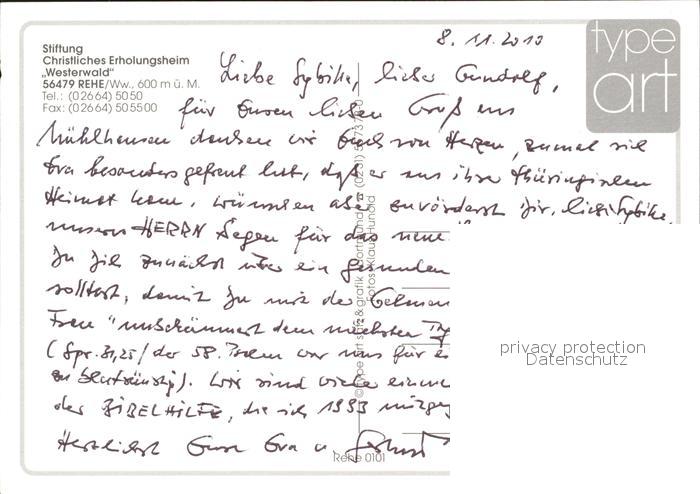 8.11.2010
type
art
Stiftung
Christliches Erholungsheim
„Westerwald"
56479 REHE/Ww., 600 m ü. M.
Tel.: (02664) 5050
Fax: (02664) 505500
Liebe Sybille, lieber Gundolf,
für Euren lieben Gruß aus
Mühlhausen danken wir Euch von Herzen, zumal sich
Eva besonders gefreut hat, daß er aus ihrer thüringischen
Heimat kam, wünschen aber zuvörderst Dir, liebe Sybille,
unseres HERRN Segen für das neue
Du Dich zunächst über ein gesundes
solltest, damit Du mit der
Frau "unbekümmert dem nächsten
(Spr. 31,25/ der 58. Psalm war uns für
zu blutrünstig). Wir sind wieder einmal
der BIBELHILFE, die sich 1993
Herzlichst Eure Eva u.
© type art satz & grafik dortmund (0231)
Fotos: Klaus Hunold
Rehe 0101
privacy protection
Datenschutz